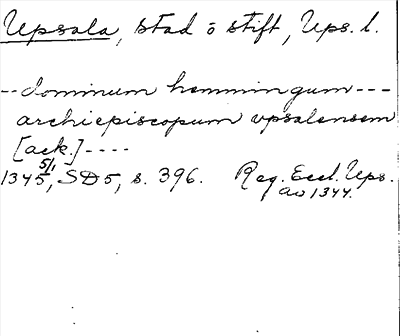 Upsala, stad o stift, Ups. l.
-- dominum hemmingum ---
archiepiscopum vpsalensem
[ack.] ----
1345 5/1, SD5, s. 396. Reg. Eccl. Ups.
av 1344.